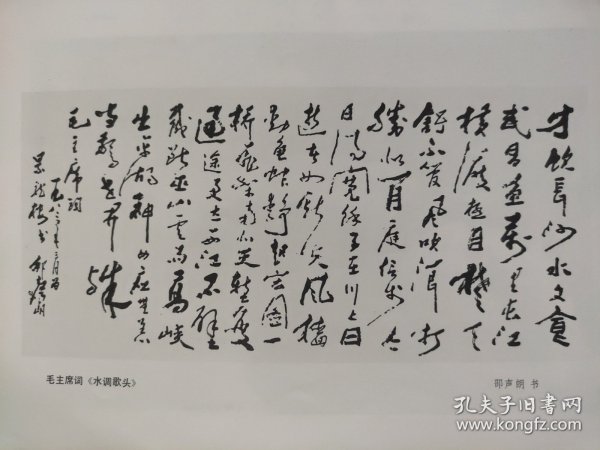 才饮長沙水又食
武昌鱼萬里长江
横渡極目楚天
舒不管风吹浪打
勝似闲庭信步今
日得宽馀子在川上曰
逝者如斯夫风樯
動龟蛇静起宏图一
桥飞架南北天堑变
通途更立西江石壁
截断巫山云雨高峡
出平湖神女应无恙
当惊世界殊
毛主席词
一九八三年
书 邵声朗
毛主席词《水调歌头》
邵声朗 书
孔夫子旧书网
www.kongfz.com